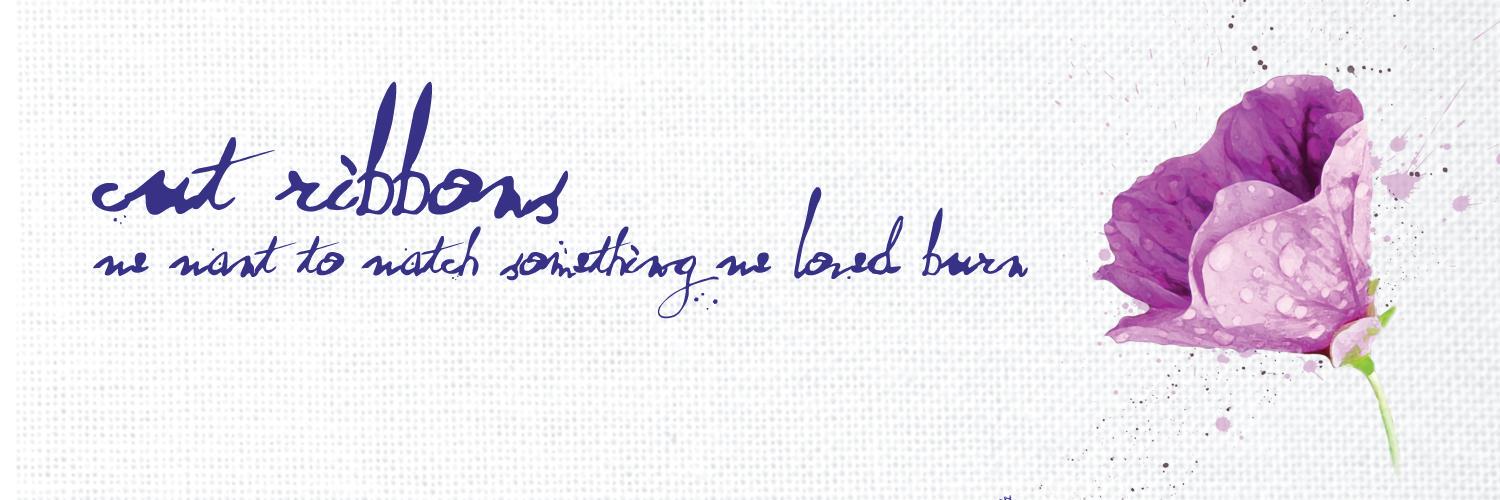 cut ribbons
we want to watch something we loved burn